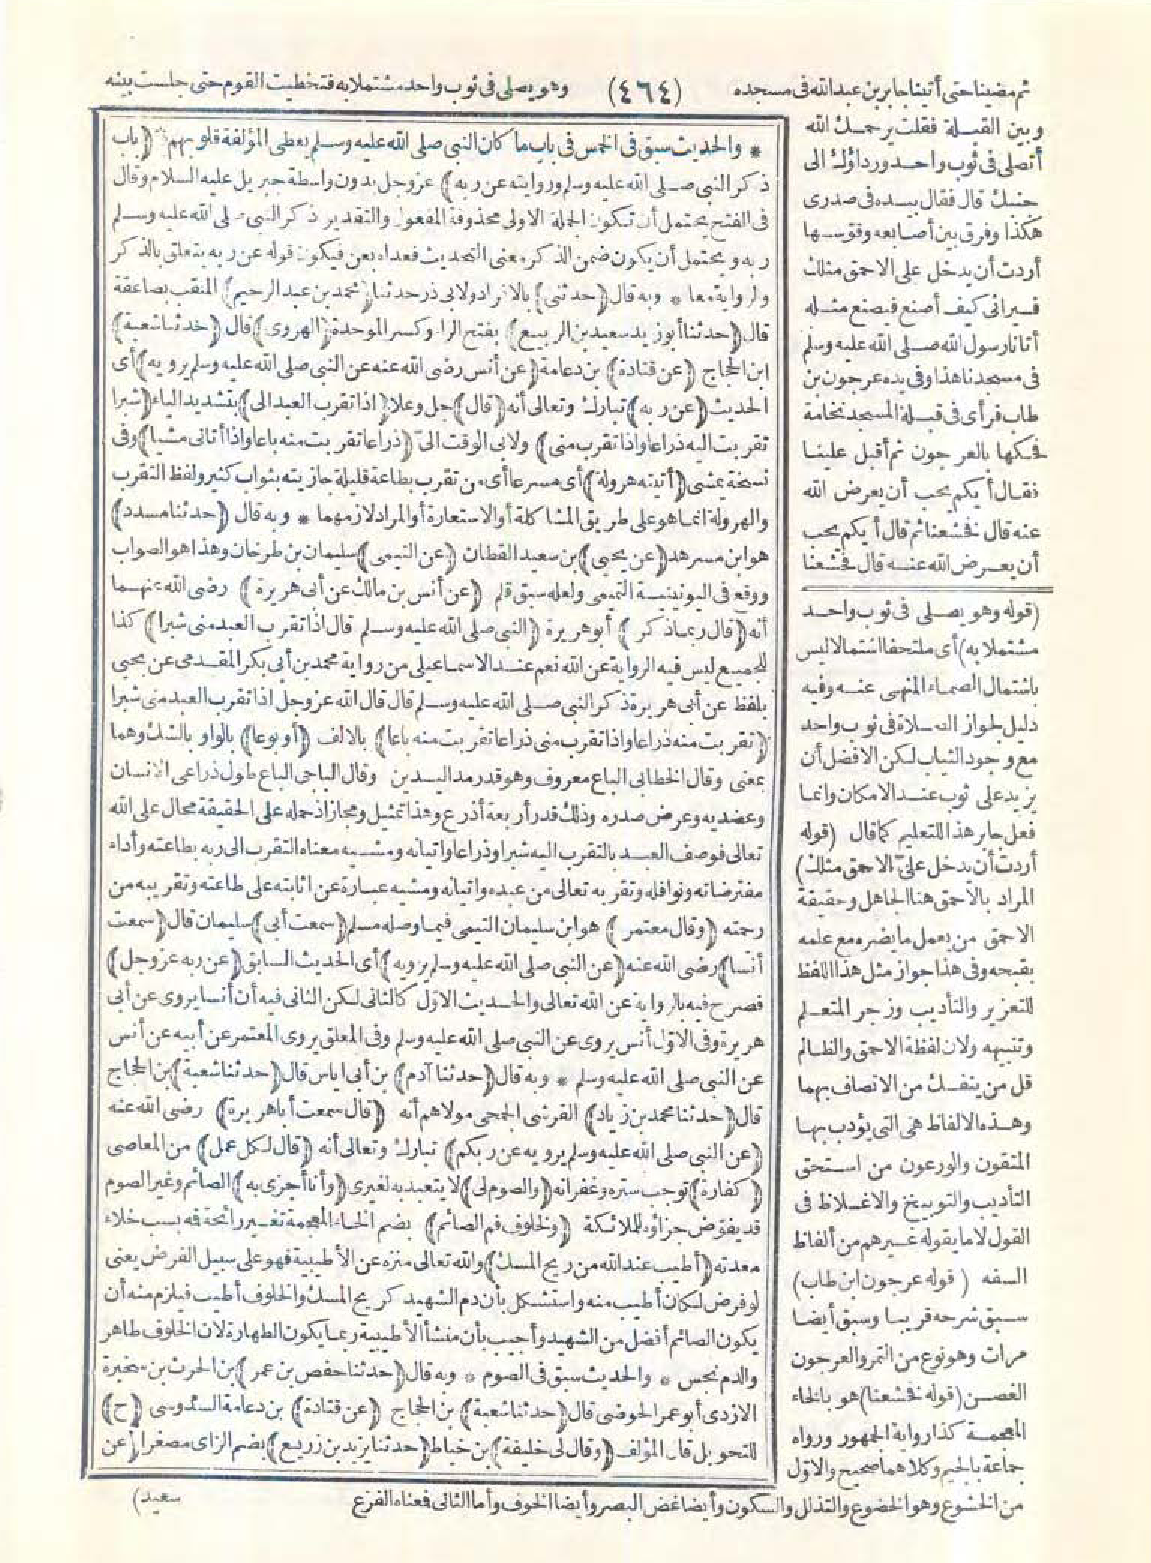 ثم مضينا حتى أتينا جابر بن عبد الله فى مسجده (٤٦٤) وهو يصلى فى ثوب واحد مشتملا به فتخطيت القوم حتى جلست بينه
وبين القبلة فقلت يرحمك الله
أتصلى فى ثوب واحد ورداؤك الى
جنبك قال فقال بيده فى صدرى
هكذا وفرق بين أصابعه وقوسها
أردت أن يدخل على الاحمق مثلك
فيرانى كيف أصنع فيصنع مثله
أتانا رسول الله صلى الله عليه وسلم
فى مسجدنا هذا وفى يده عرجون بن
طاب فرأى فى قبلة المسجد نخامة
فحكها بالعرجون ثم أقبل علينا
فقال أيكم يحب أن يعرض الله
عنه قال فخشعنا ثم قال أيكم يحب
أن يعرض الله عنه قال فخشعنا
(قوله وهو يصلى فى ثوب واحد
مشتملا به) أى ملتحفا اشتمالا ليس
باشتمال الصماء المنهى عنه وفيه
دليل لجواز الصلاة فى ثوب واحد
مع وجود الثياب لكن الافضل أن
يزيد على ثوب عند الامكان وانما
فعل جابر هذا للتعليم كما قال (قوله
أردت أن يدخل علىّ الاحمق مثلك)
المراد بالاحمق هنا الجاهل وحقيقة
الاحمق من يعمل ما يضره مع علمه
بقبحه وفى هذا جواز مثل هذا اللفظ
للتعزير والتأديب وزجر المتعلم
وتنبيهه ولان لفظة الاحمق والظالم
قل من ينفك من الاتصاف بهما
وهذه الالفاظ هى التى يؤدب بها
المتقون والورعون من استحق
التأديب والتوبيخ والاغلاظ فى
القول لا ما يقوله غيرهم من ألفاظ
السفه (قوله عرجون ابن طاب)
سبق شرحه قريبا وسبق أيضا
مرات وهو نوع من التمر والعرجون
الغصن (قوله فخشعنا) هو بالخاء
المعجمة كذا رواية الجمهور ورواه
جماعة بالجيم وكلاهما صحيح والاول
من الخشوع وهو الخضوع والتذلل والسكون وأيضا غض البصر وأيضا الخوف وأما الثانى فمعناه الفزع
* والحديث سبق فى الخمس فى باب ما كان النبى صلى الله عليه وسلم يعطى المؤلفة قلوبهم * (باب
ذكر النبى صلى الله عليه وسلم وروايته عن ربه) عز وجل بدون واسطة جبريل عليه السلام وقال
فى الفتح يحتمل أن تكون الجملة الاولى محذوفة المفعول والتقدير ذكر النبى صلى الله عليه وسلم
ربه ويحتمل أن يكون ضمن الذكر معنى التحديث فعداه بعن فيكون قوله عن ربه يتعلق بالذكر
والرواية معا * وبه قال (حدثنى) بالافراد ولابى ذر حدثنا (محمد بن عبد الرحيم) الملقب بصاعقة
قال (حدثنا أبو زيد سعيد بن الربيع) بفتح الراء وكسر الموحدة (الهروى) قال (حدثنا شعبة)
ابن الحجاج (عن قتادة) بن دعامة (عن أنس رضى الله عنه عن النبى صلى الله عليه وسلم يرويه) أى
الحديث (عن ربه) تبارك وتعالى أنه (قال) جل وعلا (اذا تقرب العبد الى) بتشديد الياء (شبرا
تقربت اليه ذراعا واذا تقرب منى) ولابى الوقت الىّ (ذراعا تقربت منه باعا واذا أتانى مشيا) وفى
نسخة يمشى (أتيته هرولة) أى مسرعا أى من تقرب بطاعة قليلة جازيته بثواب كثير ولفظ التقرب
والهرولة انما هو على طريق المشاكلة أو الاستعارة أو المراد لازمهما * وبه قال (حدثنا مسدد)
هو ابن مسرهد (عن يحيى) بن سعيد القطان (عن التيمى) سليمان بن طرخان وهذا هو الصواب
ووقع فى اليونينية التميمى ولعله سبق قلم (عن أنس بن مالك عن أبى هريرة) رضى الله عنهما
أنه (قال ربما ذكر) أبو هريرة (النبى صلى الله عليه وسلم قال اذا تقرب العبد منى شبرا) كذا
للجميع ليس فيه الرواية عن الله نعم عند الاسماعيلى من رواية محمد بن أبى بكر المقدمى عن يحيى
بلفظ عن أبى هريرة ذكر النبى صلى الله عليه وسلم قال قال الله عز وجل اذا تقرب العبد منى شبرا
(تقربت منه ذراعا واذا تقرب منى ذراعا تقربت منه باعا) بالالف (أو بوعا) بالواو بالشك وهما
بمعنى وقال الخطابى الباع معروف وهو قدر مد اليدين وقال الباجى الباع طول ذراعى الانسان
وعضديه وعرض صدره وذلك قدر أربعة أذرع وهذا تمثيل ومجاز اذ حمله على الحقيقة محال على الله
تعالى فوصف العبد بالتقرب اليه شبرا وذراعا واتيانه ومشيه معناه التقرب الى ربه بطاعته وأداء
مفترضاته ونوافله وتقربه تعالى من عبده واتيانه ومشيه عبارة عن اثابته على طاعته وتقريبه من
رحمته (وقال معتمر) هو ابن سليمان التيمى فيما وصله مسلم (سمعت أبى) سليمان قال (سمعت
أنسا) رضى الله عنه (عن النبى صلى الله عليه وسلم يرويه) أى الحديث السابق (عن ربه عز وجل)
فصرح فيه بالرواية عن الله تعالى والحديث الاول كالثانى لكن الثانى فيه أن أنسا يروى عن أبى
هريرة وفى الاول أنس يروى عن النبى صلى الله عليه وسلم وفى المعلق يروى المعتمر عن أبيه عن أنس
عن النبى صلى الله عليه وسلم * وبه قال (حدثنا آدم) بن أبى اياس قال (حدثنا شعبة) بن الحجاج
قال (حدثنا محمد بن زياد) القرشى الجمحى مولاهم أنه (قال سمعت أبا هريرة) رضى الله عنه
(عن النبى صلى الله عليه وسلم يرويه عن ربكم) تبارك وتعالى أنه (قال لكل عمل) من المعاصى
(كفارة) توجب ستره وغفرانه (والصوم لى) لا يتعبد به لغيرى (وأنا أجزى به) الصائم وغير الصوم
قد يفوض جزاؤه للملائكة (ولخلوف فم الصائم) بضم الخاء المعجمة تغير رائحة فمه بسبب خلاء
معدته (أطيب عند الله من ريح المسك) والله تعالى منزه عن الأطيبية فهو على سبيل الفرض يعنى
لو فرض لكان أطيب منه واستشكل بأن دم الشهيد كريح المسك والخلوف أطيب فيلزم منه أن
يكون الصائم أفضل من الشهيد وأجيب بأن منشأ الأطيبية ربما يكون الطهارة لان الخلوف طاهر
والدم نجس * والحديث سبق فى الصوم * وبه قال (حدثنا حفص بن عمر) بن الحرث بن سخبرة
الازدى أبو عمر الحوضى قال (حدثنا شعبة) بن الحجاج (عن قتادة) بن دعامة السدوسى (ح)
للتحويل قال المؤلف (وقال لى خليفة) بن خياط (حدثنا يزيد بن زريع) بضم الزاى مصغرا (عن
سعيد)